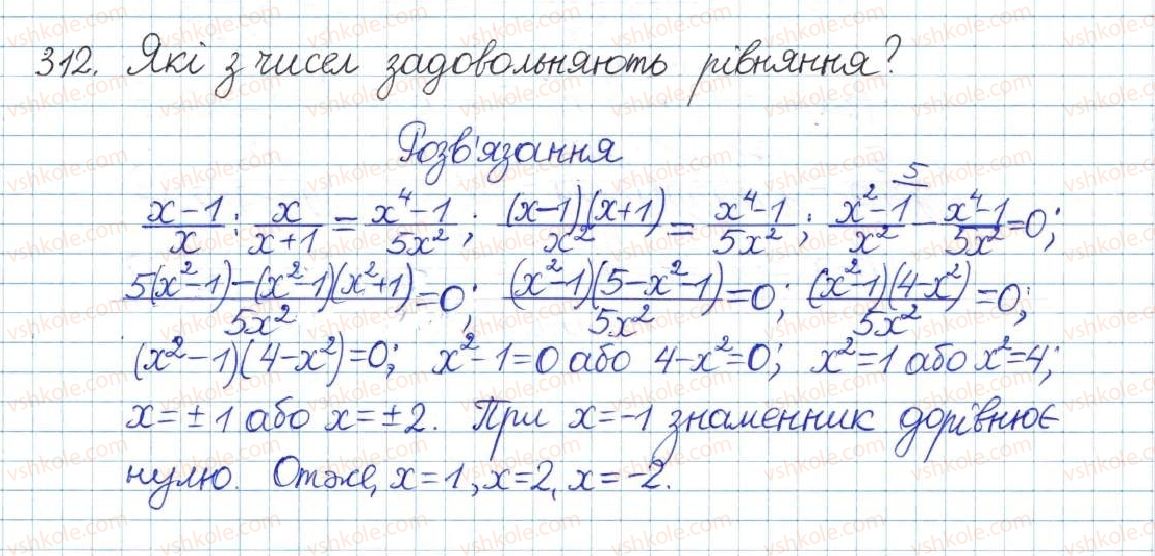 312. Які з чисел задовольняють рівняння?
Розв'язання
(x-1)/x : x/(x+1) = (x⁴-1)/(5x²); ((x-1)(x+1))/x² = (x⁴-1)/(5x²); ⁵/(x²-1)/x² - (x⁴-1)/(5x²) = 0;
(5(x²-1)-(x²-1)(x²+1))/(5x²) = 0; ((x²-1)(5-x²-1))/(5x²) = 0; ((x²-1)(4-x²))/(5x²) = 0;
(x²-1)(4-x²)=0; x²-1=0 або 4-x²=0; x²=1 або x²=4;
x=±1 або x=±2. При x=-1 знаменник дорівнює
нулю. Отже, x=1, x=2, x=-2.